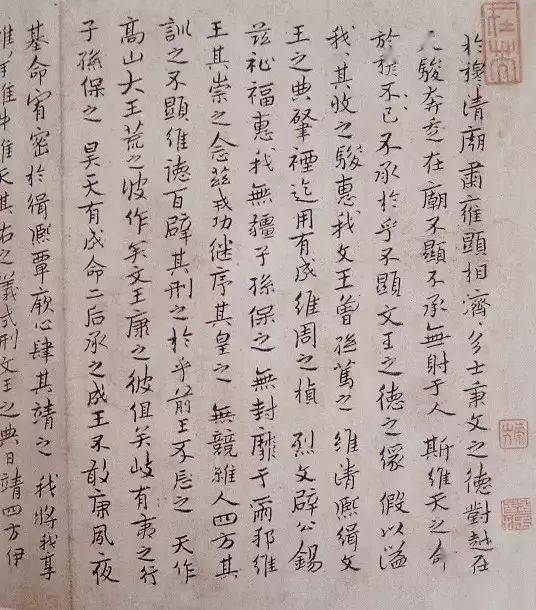 於穆清廟肅雍顯相濟々多士秉文之德對越在
天駿奔走在廟不顯不承無射于人斯維天之命
於穆不已不承於乎不顯文王之德之純假以溢
我々其收之駿惠我文王曾孫篤之維清熙緝文
王之典肇禋迄用有成維周之楨烈文辟公錫
茲祉福惠我無疆子孫保之無封靡于爾邦維
王其崇之念茲戎功继序其皇之無競維人四方其
訓之不顯維德百辟其刑之於乎前王不忘之天作
高山大王荒之彼作矣文王康之彼徂矣岐有夷之行
子孫保之昊天有成命二后承之成王不敢康夙夜
基命宥密於緝熙覃厥心肆其靖之我將我享
維羊維牛維天其右之儀式刑文王之典日靖四方伊